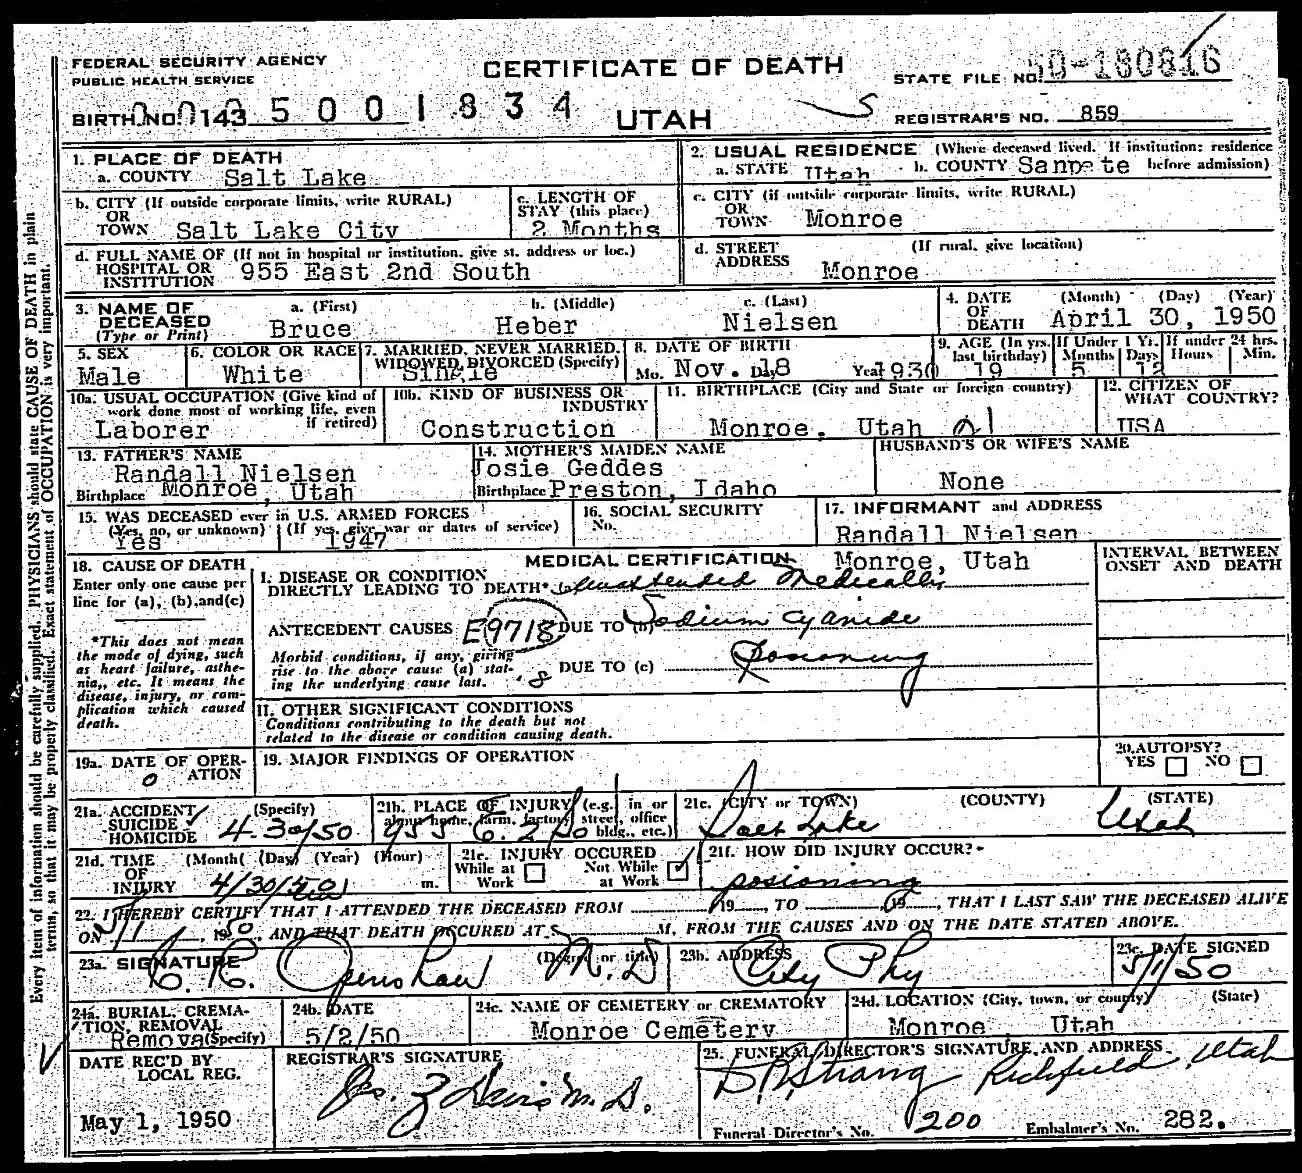 FEDERAL SECURITY AGENCY
PUBLIC HEALTH SERVICE
CERTIFICATE OF DEATH
STATE FILE NO. 50-180816
BIRTH NO. 143 5 0 0 1 8 3 4
UTAH
REGISTRAR'S NO. 859
1. PLACE OF DEATH
a. COUNTY Salt Lake
2. USUAL RESIDENCE (Where deceased lived. If institution: residence before admission)
a. STATE Utah b. COUNTY Sanpete
b. CITY (If outside corporate limits, write RURAL)
OR
TOWN Salt Lake City
c. LENGTH OF
STAY (this place)
2 Months
c. CITY (if outside corporate limits, write RURAL)
OR
TOWN Monroe
d. FULL NAME OF (If not in hospital or institution, give st. address or loc.)
HOSPITAL OR
INSTITUTION 955 East 2nd South
d. STREET (If rural, give location)
ADDRESS Monroe
3. NAME OF
DECEASED
(Type or Print)
a. (First) b. (Middle) c. (Last)
Bruce Heber Nielsen
4. DATE (Month) (Day) (Year)
OF
DEATH April 30, 1950
5. SEX
Male
6. COLOR OR RACE
White
7. MARRIED, NEVER MARRIED,
WIDOWED, DIVORCED (Specify)
Single
8. DATE OF BIRTH
Mo. Nov. D. 18 Year 1930
9. AGE (In yrs. last birthday) If Under 1 Yr. If under 24 hrs.
Months Days Hours Min.
19 5 12
10a. USUAL OCCUPATION (Give kind of
work done most of working life, even
if retired)
Laborer
10b. KIND OF BUSINESS OR
INDUSTRY
Construction
11. BIRTHPLACE (City and State or foreign country)
Monroe, Utah
12. CITIZEN OF
WHAT COUNTRY?
USA
13. FATHER'S NAME
Randall Nielsen
Birthplace Monroe, Utah
14. MOTHER'S MAIDEN NAME
Josie Geddes
Birthplace Preston, Idaho
HUSBAND'S OR WIFE'S NAME
None
15. WAS DECEASED ever in U.S. ARMED FORCES
(Yes, no, or unknown) (If yes, give war or dates of service)
Yes 1947
16. SOCIAL SECURITY
No.
17. INFORMANT and ADDRESS
Randall Nielsen
Monroe, Utah
18. CAUSE OF DEATH
Enter only one cause per
line for (a), (b), and (c)
*This does not mean
the mode of dying, such
as heart failure, asthe-
nia, etc. It means the
disease, injury, or com-
plication which caused
death.
MEDICAL CERTIFICATION
INTERVAL BETWEEN
ONSET AND DEATH
I. DISEASE OR CONDITION
DIRECTLY LEADING TO DEATH* (a) unattended medically
ANTECEDENT CAUSES E9718 DUE TO (b) Sodium cyanide
Morbid conditions, if any, giving
rise to the above cause (a) stat-
ing the underlying cause last. 8
DUE TO (c) Posioning
II. OTHER SIGNIFICANT CONDITIONS
Conditions contributing to the death but not
related to the disease or condition causing death.
19a. DATE OF OPER-
ATION
0
19. MAJOR FINDINGS OF OPERATION
20. AUTOPSY?
YES NO
21a. ACCIDENT (Specify)
SUICIDE ✓
HOMICIDE 4-30/50
21b. PLACE OF INJURY (e.g., in or
about home, farm, factory, street, office
bldg., etc.)
955 E. 2 So
21c. (CITY or TOWN) (COUNTY) (STATE)
Salt Lake Utah
21d. TIME (Month) (Day) (Year) (Hour)
OF
INJURY 4/30/50 m.
21e. INJURY OCCURED
While at Work Not While at Work ✓
21f. HOW DID INJURY OCCUR?
posioning
22. I HEREBY CERTIFY THAT I ATTENDED THE DECEASED FROM 19 , TO 19 , THAT I LAST SAW THE DECEASED ALIVE
ON 5/1, 1950, AND THAT DEATH OCCURED AT M, FROM THE CAUSES AND ON THE DATE STATED ABOVE.
23a. SIGNATURE (Degree or title)
C. R. Openshaw M.D
23b. ADDRESS
City Phy
23c. DATE SIGNED
5/1/50
24a. BURIAL, CREMA-
TION, REMOVAL
(Specify)
Removal
24b. DATE
5/2/50
24c. NAME OF CEMETERY or CREMATORY
Monroe Cemetery
24d. LOCATION (City, town, or county) (State)
Monroe, Utah
DATE REC'D BY
LOCAL REG.
May 1, 1950
REGISTRAR'S SIGNATURE
M.D.
25. FUNERAL DIRECTOR'S SIGNATURE AND ADDRESS
Richfield, Utah
Funeral Director's No. 200 Embalmer's No. 282.
Every item of information should be carefully supplied. PHYSICIANS should state CAUSE OF DEATH in plain
terms, so that it may be properly classified. Exact statement of OCCUPATION is very important.